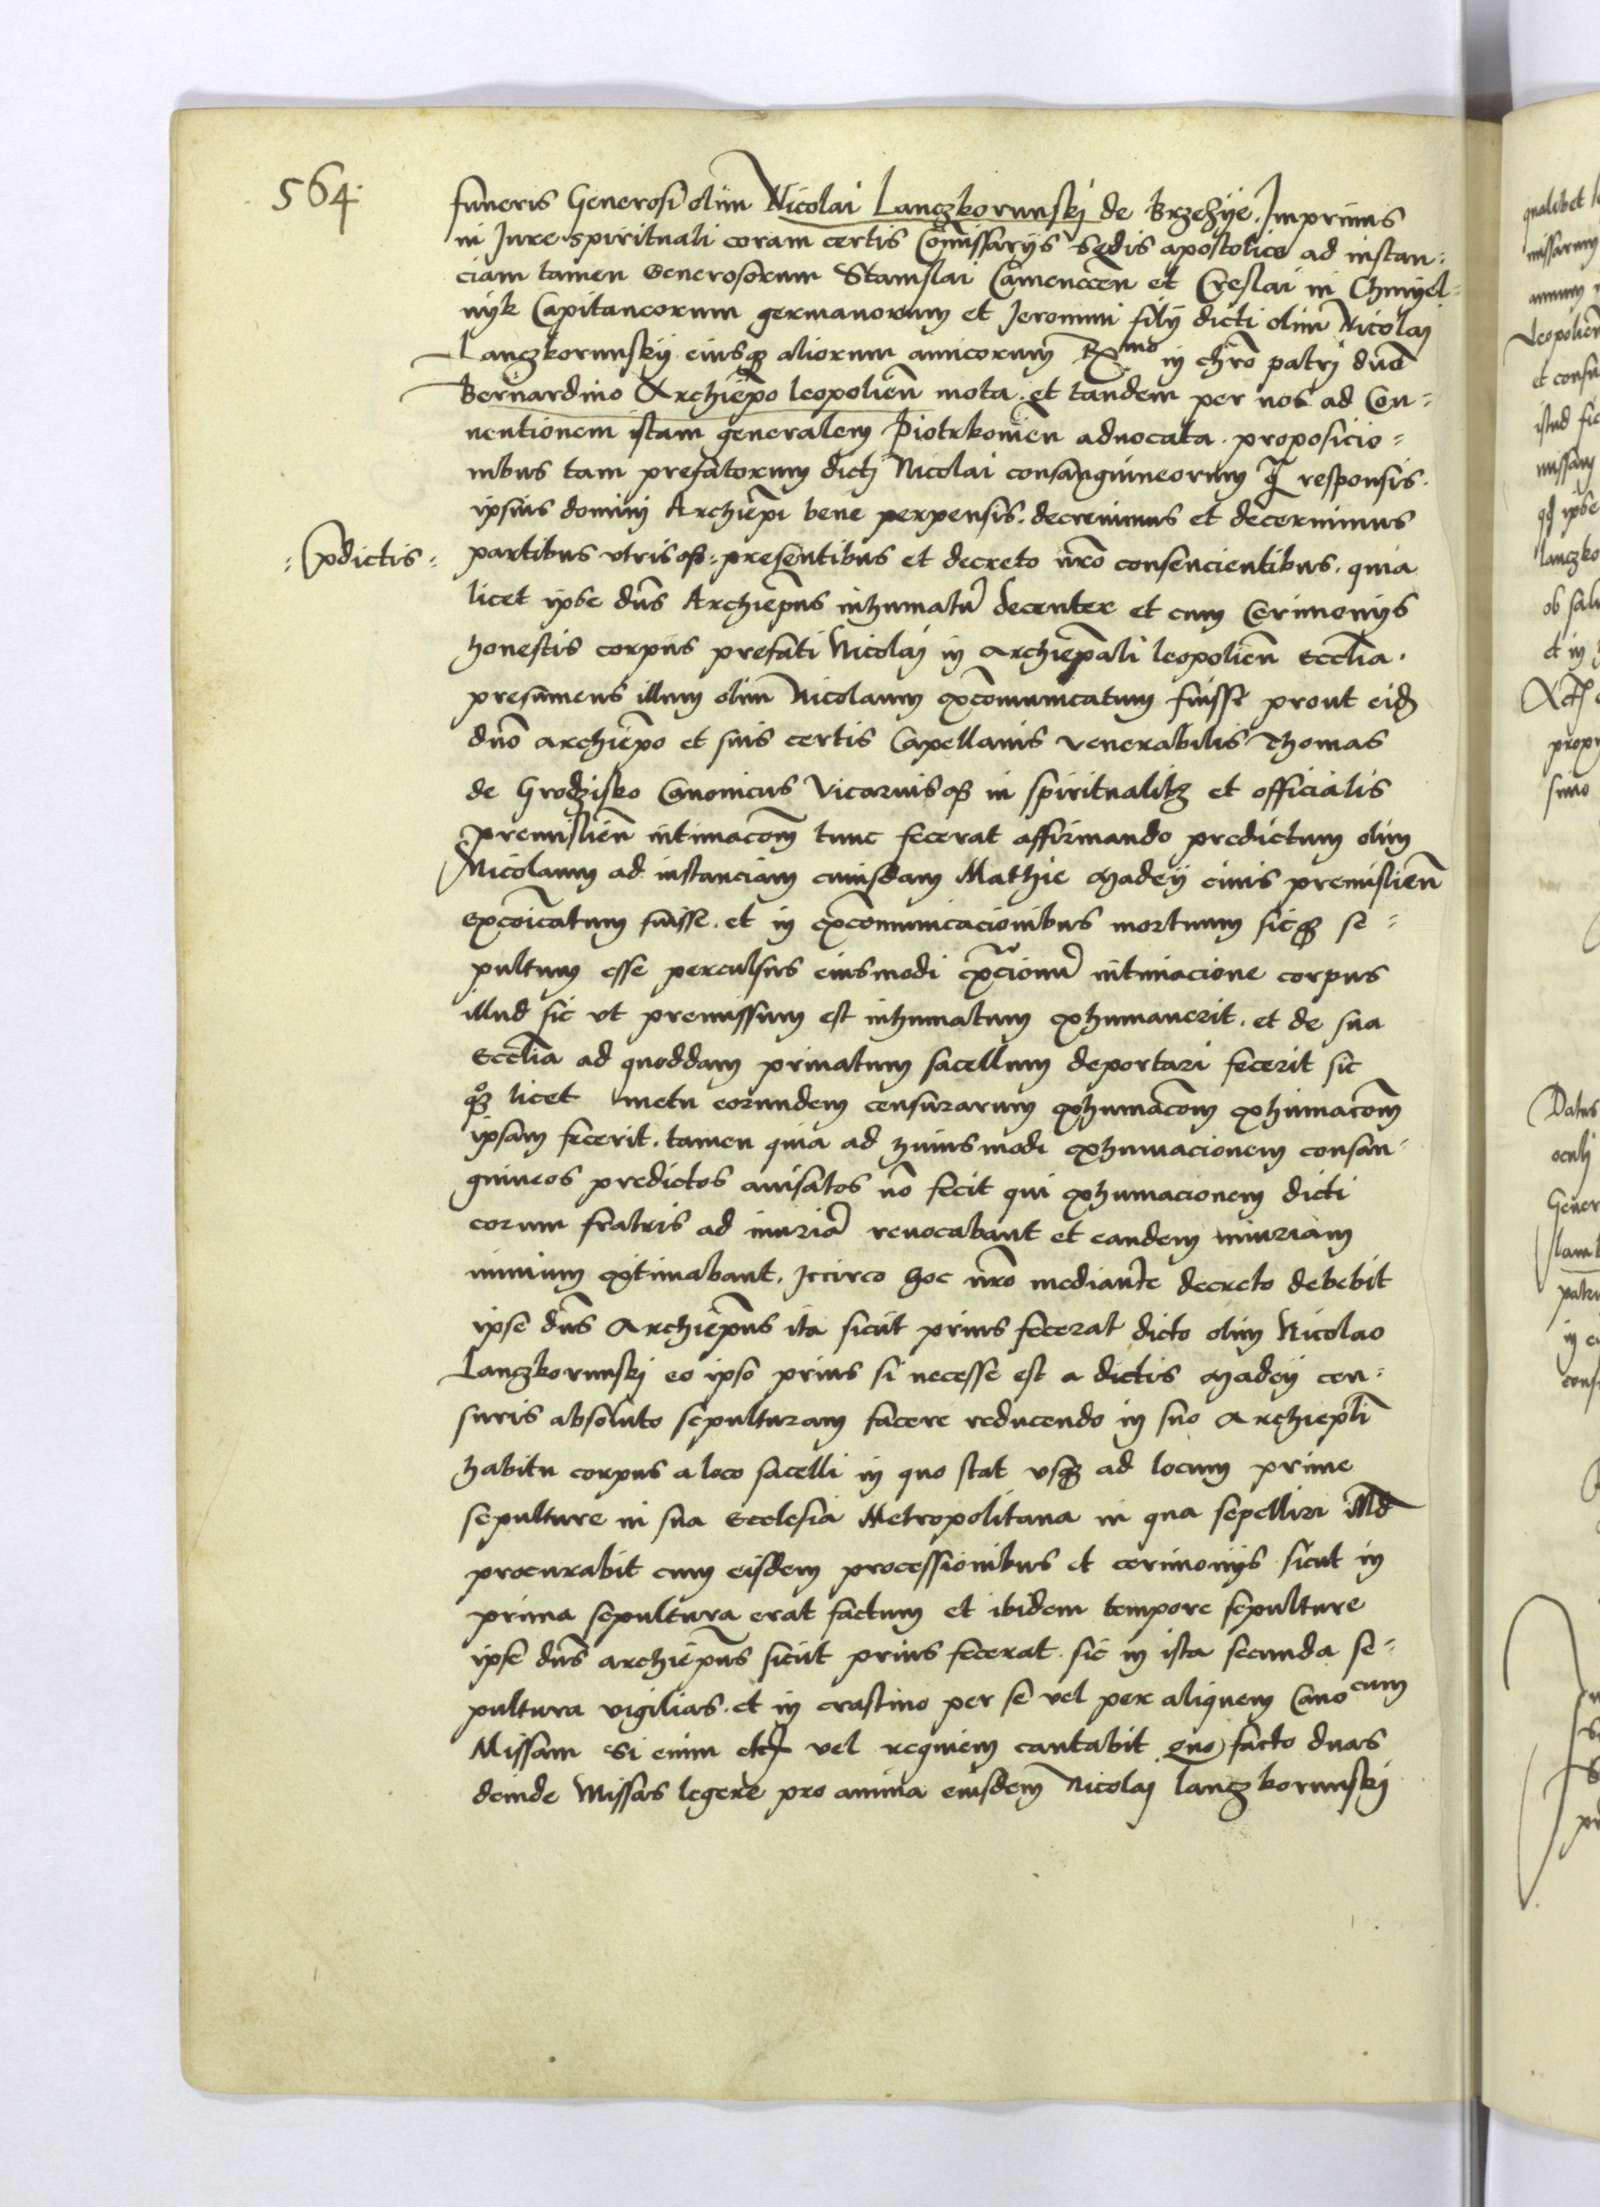 564
funeris Generosi olim Nicolai Lanczkorunskj de Brzezye. Imprimis
in Jure spirituali coram certis Com̄issarijs Sedis apostolice ad instan=
ciam tamen Generosorum Stanislai Camenecen̄ et Creslai in Chmyel=
nyk Capitaneorum germanorum et Jeronimi filij dicti olim Nicolaj
Lanczkorunskij eiusq3 aliorum amicorum Rmo in chr̄o patrj dn̄o
Bernardino Archiēpo leopolien̄ mota. et tandem per nos ad Con=
uentionem istam generalem Piotrkouien̄ aduocata. proposicio=
nibus tam prefatorum dictj Nicolai consanguineorum q̄ responsis.
ipsius dominj Archiēpi bene perpensis. decreuimus et decernimus
=p̄dictis=
partibus vtrisq3 = presentibus et decreto nr̄o consencientibus. quia
licet ipse dn̄s Archiēpus inhumatū decenter et cum Cerimonijs
honestis corpus prefati Nicolaj in archiēpali leopolien̄ eccl̄ia.
presumens illum olim Nicolaum excōmunicatum fuisse prout eid̄
dn̄o archiēpo et suis certis Capellanis venerabilis Thomas
de Grodzisko Canonicus Vicariusq3 in spiritualib3 et officialis
premislien̄ intimacōm tunc fecerat affirmando predictum olim
Nicolaum ad instanciam cuiusdam Mathie Madey ciuis premislien̄
excōicatum fuisse. et in excōmunicacionibus mortuum sicq3 se=
pultum esse perculsus eiusmodi ex̄cionū intimacione corpus
illud sic vt premissum est inhumatum exhumauerit. et de sua
Eccl̄ia ad quoddam priuatum sacellum deportari fecerit sic
q3 licet metu eorundem censurarum exhumacōm exhumacōm
ipsam fecerit. tamen quia ad huiusmodi exhumacionem consan=
guineos predictos auisatos nō fecit qui exhumacionem dicti
eorum fratris ad iniuriā reuocabant et eandem iniuriam
nimium extimabant. Iccirco hoc nr̄o mediante decreto debebit
ipse dn̄s Archiēpus ita sicut prius fecerat dicto olim Nicolao
Lanczkorunskj eo ipso prius si necesse est a dictis Madey cen=
suris absoluto sepulturam facere reducendo in suo Archiepl̄i
habitu corpus a loco sacelli in quo stat vsq3 ad locum prime
sepulture in sua Ecclesia Metropolitana in qua sepelliri ill̄d
procurabit cum eisdem processionibus et cerimonijs sicut in
prima sepultura erat factum et ibidem tempore sepulture
ipse dn̄s archiēpus sicut prius fecerat. sic in ista secunda se=
pultura vigilias. et in crastino per se vel per aliquem Canocum
Missam Si enim etc vel requiem cantabit quo facto duas
deinde Missas legere pro anima eiusdem Nicolaj lanczkorunskj